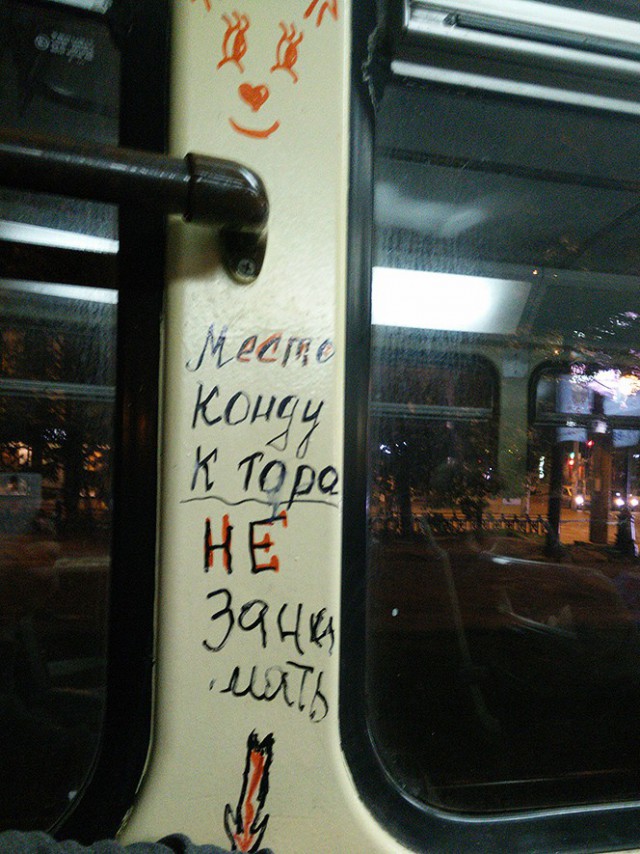 Место
Конду
к тора
НЕ
Зани
мать